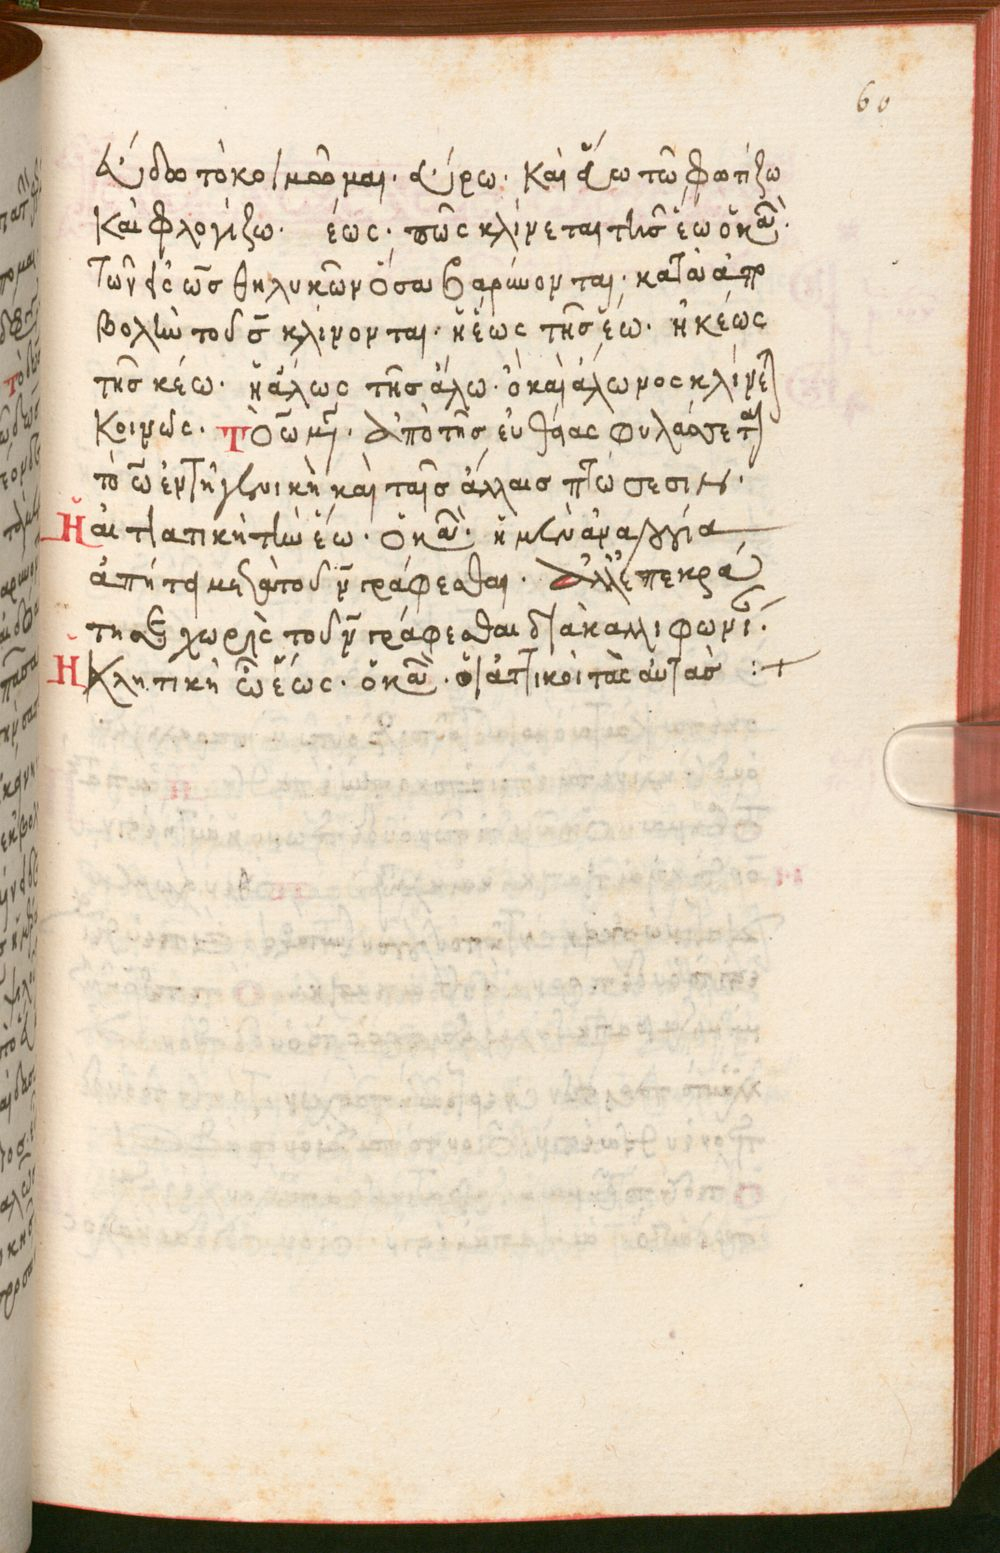 60
καὶ αὔω τὸ φωτίζω
καὶ φλογίζω. ἕως. πῶς κλίνεται τῆς ἕω ὁ κανὼν.
τῶν εἰς ως θηλυκῶν ὅσα βαρύνονται. κατὰ ἀπο
βολὴν τοῦ ς κλίνονται. ἡ ἕως τῆς ἕω. ἡ κέως
τῆς κέω. ἡ ἅλως τῆς ἅλω. ὃ καὶ ἅλωνος κλίνεται
κοινῶς. Τὸ ω μέγα. ἀπὸ τῆς εὐθείας φυλάσσεται
τὸ ω ἐν τῇ γενικῇ καὶ ταῖς ἄλλαις πτώσεσιν.
Ἡ αἰτιατικὴ τὴν ἕω. ὁ κανὼν. ἡ μὲν ἀναλογία
ἀπῄτει μετὰ τοῦ ν γράφεσθαι. ἀλλ' ἐπεκρά
τησε χωρὶς τοῦ ν γράφεσθαι διὰ καλλιφωνίαν.
Ἡ κλητικὴ ὦ ἕως. ὁ κανὼν. οἱ ἀττικοὶ τὰς αὐτὰς :+